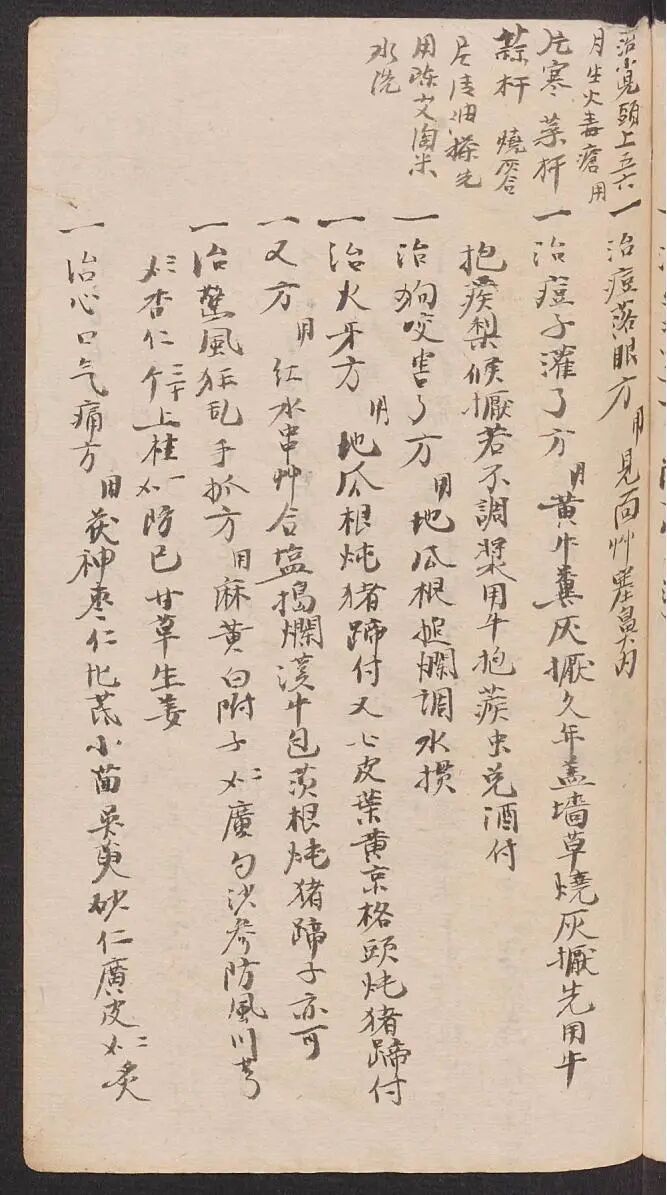 治小児頭上五六
月生火毒瘡用
片寒菜杆
蒜杆 燒灰合
用陈文淘米
水洗
一治痘落眼方用見面艸塞鼻内
一治痘子灌了方用黄牛糞灰擫久年盖墻草燒灰擫先用牛
抱蒺梨候擫若不調漿用牛抱蒺虫兑酒付
一治狗咬害了方用地瓜根搥爛調水掼
一治火牙方用地瓜根炖猪蹄付又七皮葉黄京格頭炖猪蹄付
一又方用红水串艸合塩搗爛漢牛包茨根炖猪蹄子亦可
一治驚風狂乱手抓方用麻黄白附子 廣勺沙参防風川芎
杏仁 上桂 防已甘草生姜
一治心口气痛方用茯神枣仁 小茴吴萸砂仁廣皮 炙